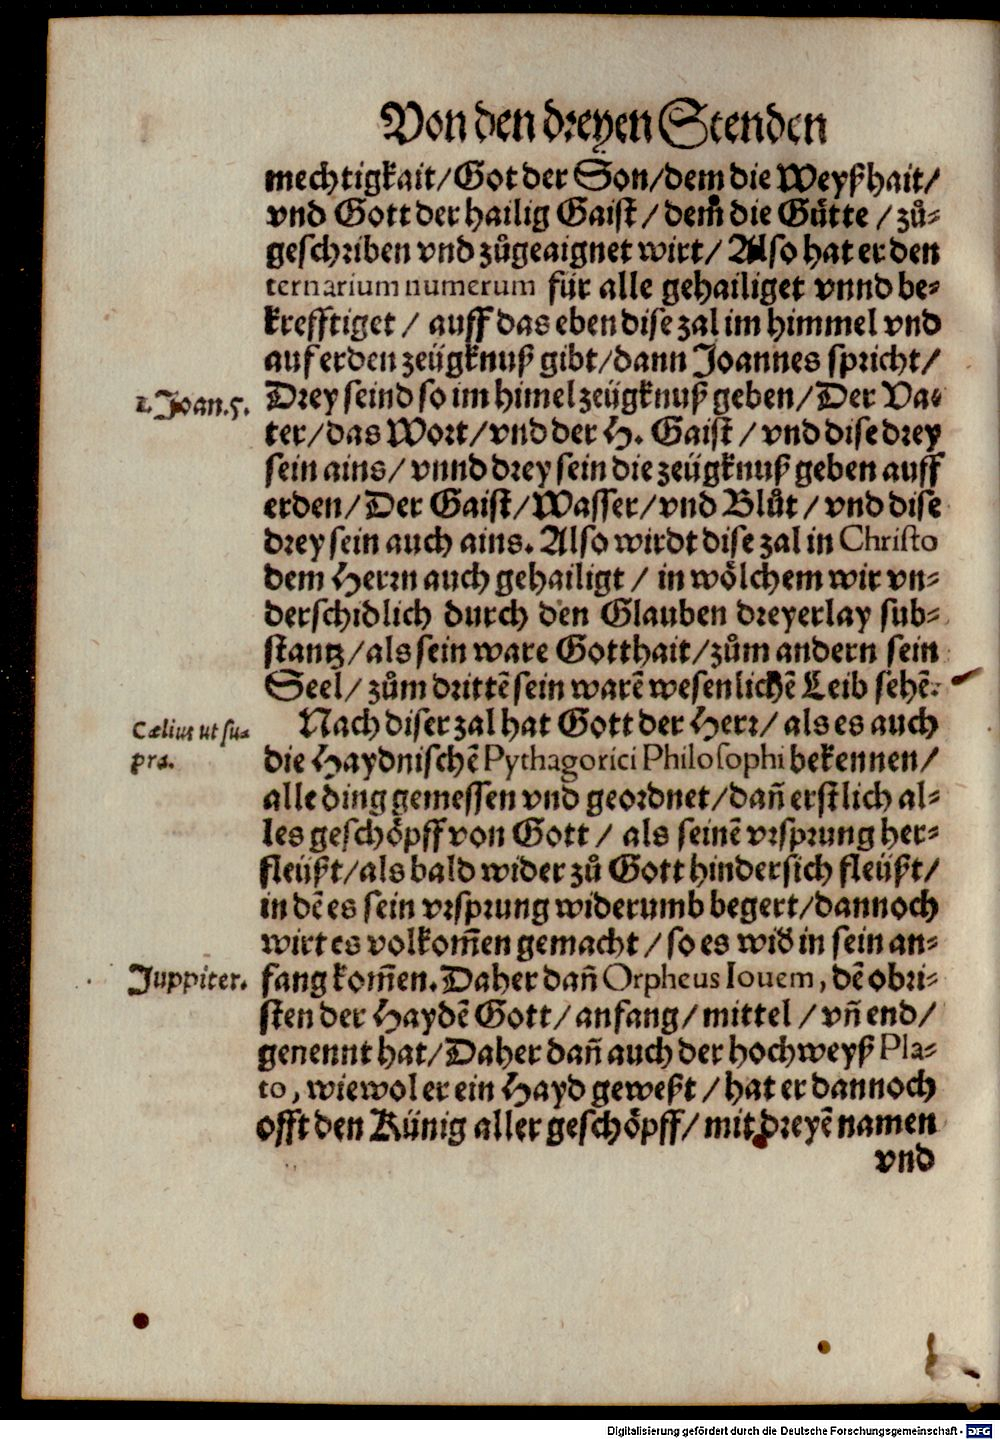 Von den dreyen Stenden
mechtigkait/Got der Son/dem die Weyßhait/
vnd Gott der hailig Gaist/dem̃ die Gůtte/zů-
geschriben vnd zůgeaignet wirt/Also hat er den
ternarium numerum für alle gehailiget vnnd be-
krefftiget/auff das eben dise zal im himmel vnd
auf erden zeügknuß gibt/dann Joannes spricht/
1. Joan. 5. Drey seind so im himel zeügknuß geben/Der Va-
ter/das Wort/vnd der H. Gaist/vnd dise drey
sein ains/vnnd drey sein die zeügknuß geben auff
erden/Der Gaist/Wasser/vnd Blůt/vnd dise
drey sein auch ains. Also wirdt dise zal in Christo
dem Herrn auch gehailigt/in wölchem wir vn-
derschidlich durch den Glauben dreyerlay sub-
stantz/als sein ware Gotthait/zům andern sein
Seel/zům drittē sein warē wesenlichē Leib sehē.
Cælius ut su- Nach diser zal hat Gott der Herr/als es auch
pra. die Haydnischē Pythagorici Philosophi bekennen/
alle ding gemessen vnd geordnet/dañ erstlich al-
les geschöpff von Gott/als seinē vrsprung her-
fleüßt/als bald wider zů Gott hindersich fleüßt/
in dē es sein vrsprung widerumb begert/dannoch
wirt es volkom̄en gemacht/so es wid in sein an-
Juppiter. fang kom̄en. Daher dañ Orpheus Iouem, dē obri-
sten der Haydē Gott/anfang/mittel/vñ end/
genennt hat/Daher dañ auch der hochweyß Pla-
to, wiewol er ein Hayd geweßt/hat er dannoch
offt den Künig aller geschöpff/mit dreyē namen
vnd
Digitalisierung gefördert durch die Deutsche Forschungsgemeinschaft - DFG